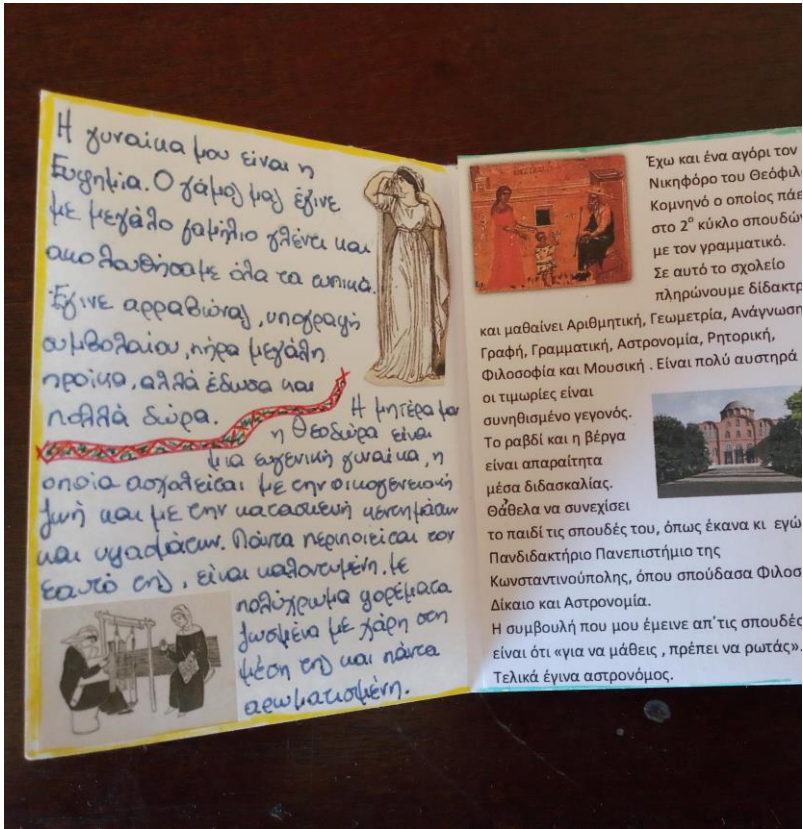 Η γυναίκα μου είναι η
Ευφημία. Ο γάμος μας έγινε
με μεγάλο γαμήλιο γλέντι και
ακολουθήσαμε όλα τα τυπικά.
Έγινε αρραβώνας, υπογραφή
συμβολαίου, πήρα μεγάλη
προίκα, αλλά έδωσα και
πολλά δώρα.
Η μητέρα μου
η Θεοδώρα είναι
μια ευγενική γυναίκα, η
οποία ασχολείται με την οικογενειακή
ζωή και με την κατασκευή κεντημάτων
και υφασμάτων. Πάντα περιποιείται τον
εαυτό της, είναι καλοντυμένη με
πολύχρωμα φορέματα
ζωσμένα με χάρη στη
μέση της και πάντα
αρωματισμένη.
Έχω και ένα αγόρι τον
Νικηφόρο του Θεόφιλο
Κομνηνό ο οποίος πάε
στο 2° κύκλο σπουδών
με τον γραμματικό.
Σε αυτό το σχολείο
πληρώνουμε δίδακτρ
και μαθαίνει Αριθμητική, Γεωμετρία, Ανάγνωση
Γραφή, Γραμματική, Αστρονομία, Ρητορική,
Φιλοσοφία και Μουσική . Είναι πολύ αυστηρά
οι τιμωρίες είναι
συνηθισμένο γεγονός.
Το ραβδί και η βέργα
είναι απαραίτητα
μέσα διδασκαλίας.
Θάθελα να συνεχίσει
το παιδί τις σπουδές του, όπως έκανα κι εγώ
Πανδιδακτήριο Πανεπιστήμιο της
Κωνσταντινούπολης, όπου σπούδασα Φιλοσ
Δίκαιο και Αστρονομία.
Η συμβουλή που μου έμεινε απ΄τις σπουδές
είναι ότι «για να μάθεις , πρέπει να ρωτάς».
Τελικά έγινα αστρονόμος.